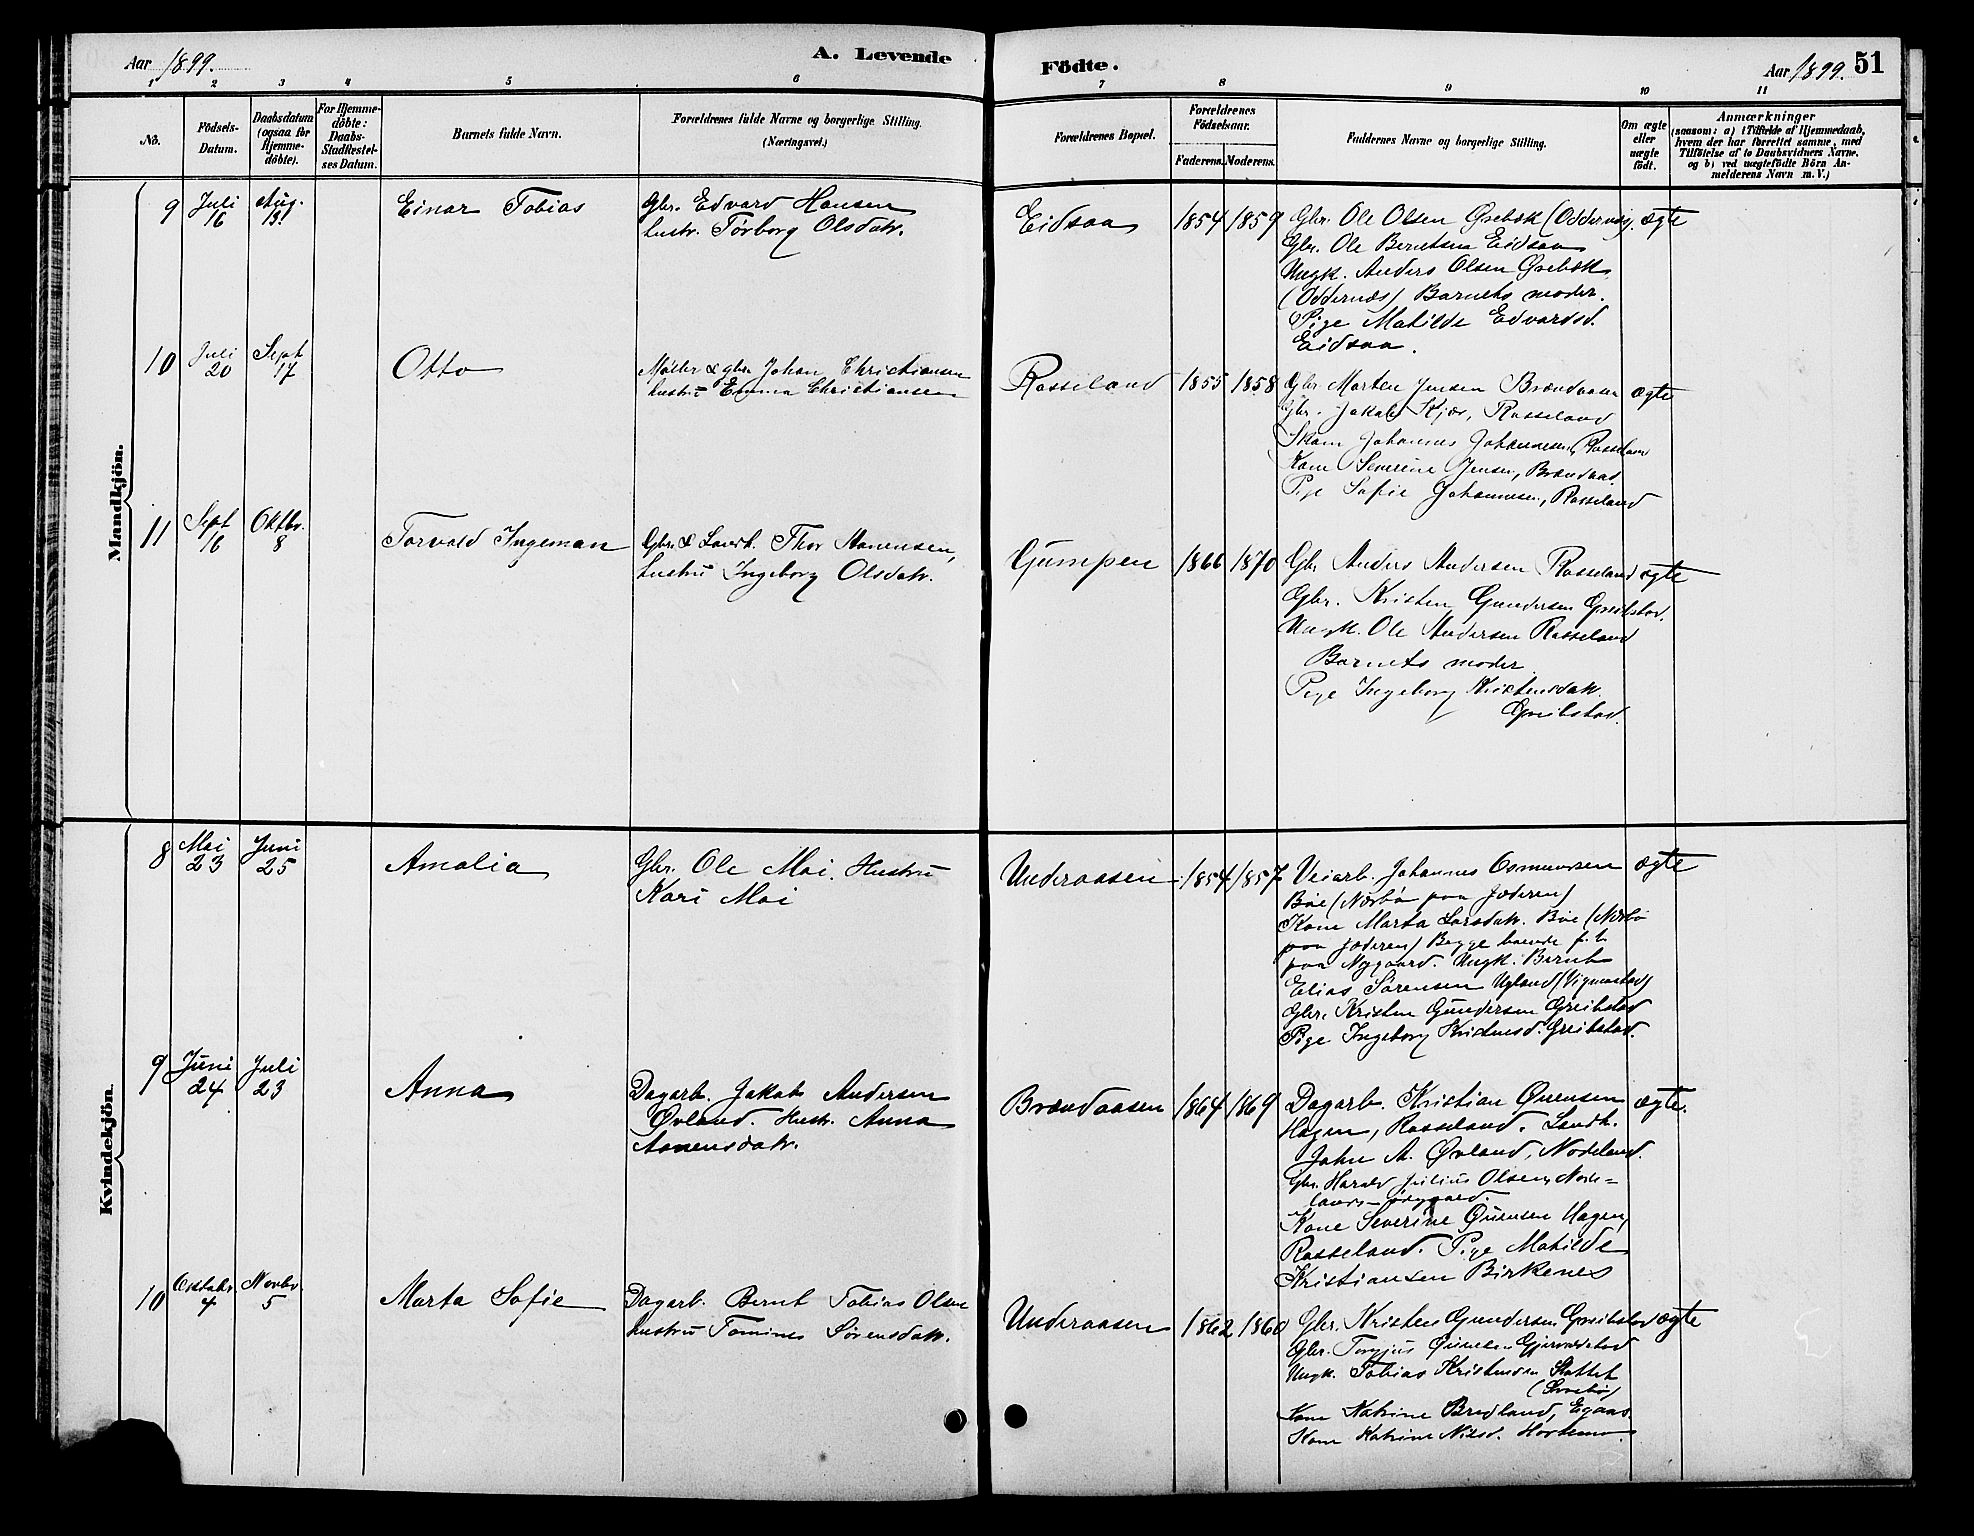 Aar 1899.
A. Levende
Födte.
Aar 1899. 51
1 2 3 4 5 6 7 8 9 10 11
No.
Födsels-
Datum.
Daabsdatum
(ogsaa for
Hjemme-
döbte).
For Hjemme-
döbte:
Daabs-
Stadfæstel-
ses Datum.
Barnets fulde Navn.
Forældrenes fulde Navne og borgerlige Stilling.
(Næringsvei.)
Forældrenes Bopæl.
Forældrenes
Födselsaar.
Faderens. Moderens.
Faddernes Navne og borgerlige Stilling.
Om ægte
eller
uægte
födt.
Anmærkninger
(saasom: a) i Tilfælde af Hjemmedaab,
hvem der har forrettet samme, med
Tilföielse af to Daabsvidners Navne,
og b) ved uægtefödte Börn An-
melderens Navn m. V.)
Mandkjön.
9 Juli 16 Aug. 13.
Einar Tobias
Gbr. Edvard Hansen
hustr. Torborg Olsdatr.
Eidsaa 1854 1859
Gbr. Ole Olsen Øsebæk (Oddernæs). ægte
Gbr. Ole Berntsen Eidsaa
Ungk. Anders Olsen Øsebæk
(Oddernæs) Barnets moder.
Pige Matilde Edvardsd.
Eidsaa.
10 Juli 20 Sept 17
Otto
Møller & gbr. Johan Christiansen
hustru Emma Christiansen
Rosseland 1855 1858
Gbr. Morten Jensen Brændaasen ægte
Gbr. Jakob Kjær, Rosseland
Johannes Johannesen, Rosseland
Kone Severine Jensen, Brændaas.
Pige Sofie Johannesen, Rosseland
11 Sept 16 Oktbr. 8
Torvald Ingeman
Gbr. & Landh. Thor Aanensen,
hustru Ingeborg Olsdatr.
Gumpen 1866 1870
Gbr Anders Andersen Rosseland ægte
Gbr. Kristen Gundersen Greibstad.
Ungk. Ole Andersen Rosseland
Barnets moder
Pige Ingeborg Kristensdatr.
Greibstad.
Kvindekjön.
8 Mai 23 Juni 25
Amalia
Gbr. Ole Moi. Hustru
Kari Moi
Underaasen 1854 1857
Veiarb. Johannes Osmundsen ægte
Bøe (Nærbø paa Jæderen)
Kone Marta Larsdatr. Bøe (Nærbø
paa Jæderen) Begge boende f. t.
paa Nygaard. Ungk. Bernt
Elias Sørensen Ugland (Vigmostad)
Gbr. Kristen Gundersen Greibstad
Pige Ingeborg Kristensd. Greibstad.
9 Juni 24 Juli 23
Anna
Dagarb. Jakob Andersen
Øvland. Hustr. Anna
Aanensdatr.
Brændaasen 1864 1869
Dagarb. Kristian Ounsen ægte.
Hagen, Rosseland. Landh.
John A. Øvland, Nodeland.
Gbr. Harald Julius Olsen, Node-
lands-
Kone Severine Ounsen Hagen,
Rosseland. Pige Matilde
Kristiansen Birkenes
10 Octobr. 4 Novbr 5
Marta Sofie
Dagarb. Bernt Tobias Olsen
hustru Tomine Sørensdatr.
Underaasen 1862 1860
Gbr. Kristen Gundersen Greibstad ægte
Gbr. Torgjus Gjervoldstad
Ungk. Tobias Kristensen
Kone Katrine Bredland,
Kone Katrine Nilsd. Hortemo.